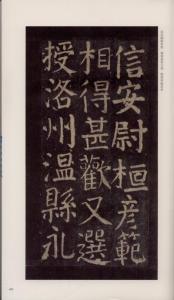 信安尉桓彦範
相得甚歡又選
授洛州温縣永